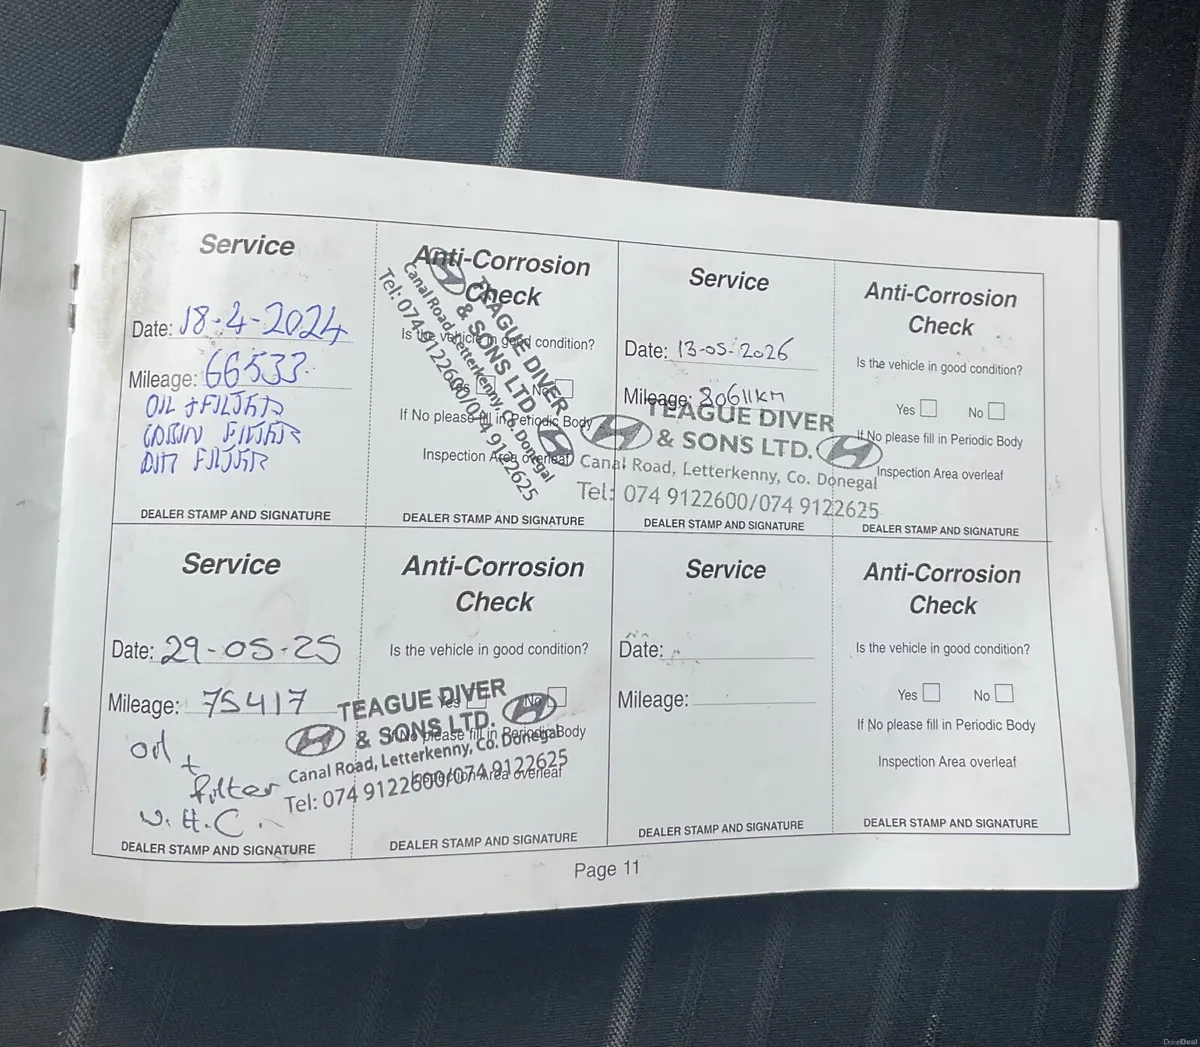 Service
Date: 18-4-2024
Mileage: 66533
OIL + FILTER
CABIN FILTER
AIR FILTER
DEALER STAMP AND SIGNATURE
Anti-Corrosion
Check
Is the vehicle in good condition?
Yes No
If No please fill in Periodic Body
Inspection Area overleaf
TEAGUE DIVER
& SONS LTD.
Canal Road, Letterkenny, Co. Donegal
Tel: 074 9122600/074 9122625
DEALER STAMP AND SIGNATURE
Service
Date: 13-05-2026
Mileage: 80611KM
TEAGUE DIVER
& SONS LTD.
Canal Road, Letterkenny, Co. Donegal
Tel: 074 9122600/074 9122625
DEALER STAMP AND SIGNATURE
Anti-Corrosion
Check
Is the vehicle in good condition?
Yes No
If No please fill in Periodic Body
Inspection Area overleaf
DEALER STAMP AND SIGNATURE
Service
Date: 29-05-25
Mileage: 75417
oil
+
filter
V.H.C.
DEALER STAMP AND SIGNATURE
Anti-Corrosion
Check
Is the vehicle in good condition?
Yes No
If No please fill in Periodic Body
Inspection Area overleaf
TEAGUE DIVER
& SONS LTD.
Canal Road, Letterkenny, Co. Donegal
Tel: 074 9122600/074 9122625
DEALER STAMP AND SIGNATURE
Service
Date:
Mileage:
DEALER STAMP AND SIGNATURE
Anti-Corrosion
Check
Is the vehicle in good condition?
Yes No
If No please fill in Periodic Body
Inspection Area overleaf
DEALER STAMP AND SIGNATURE
Page 11
DoneDeal